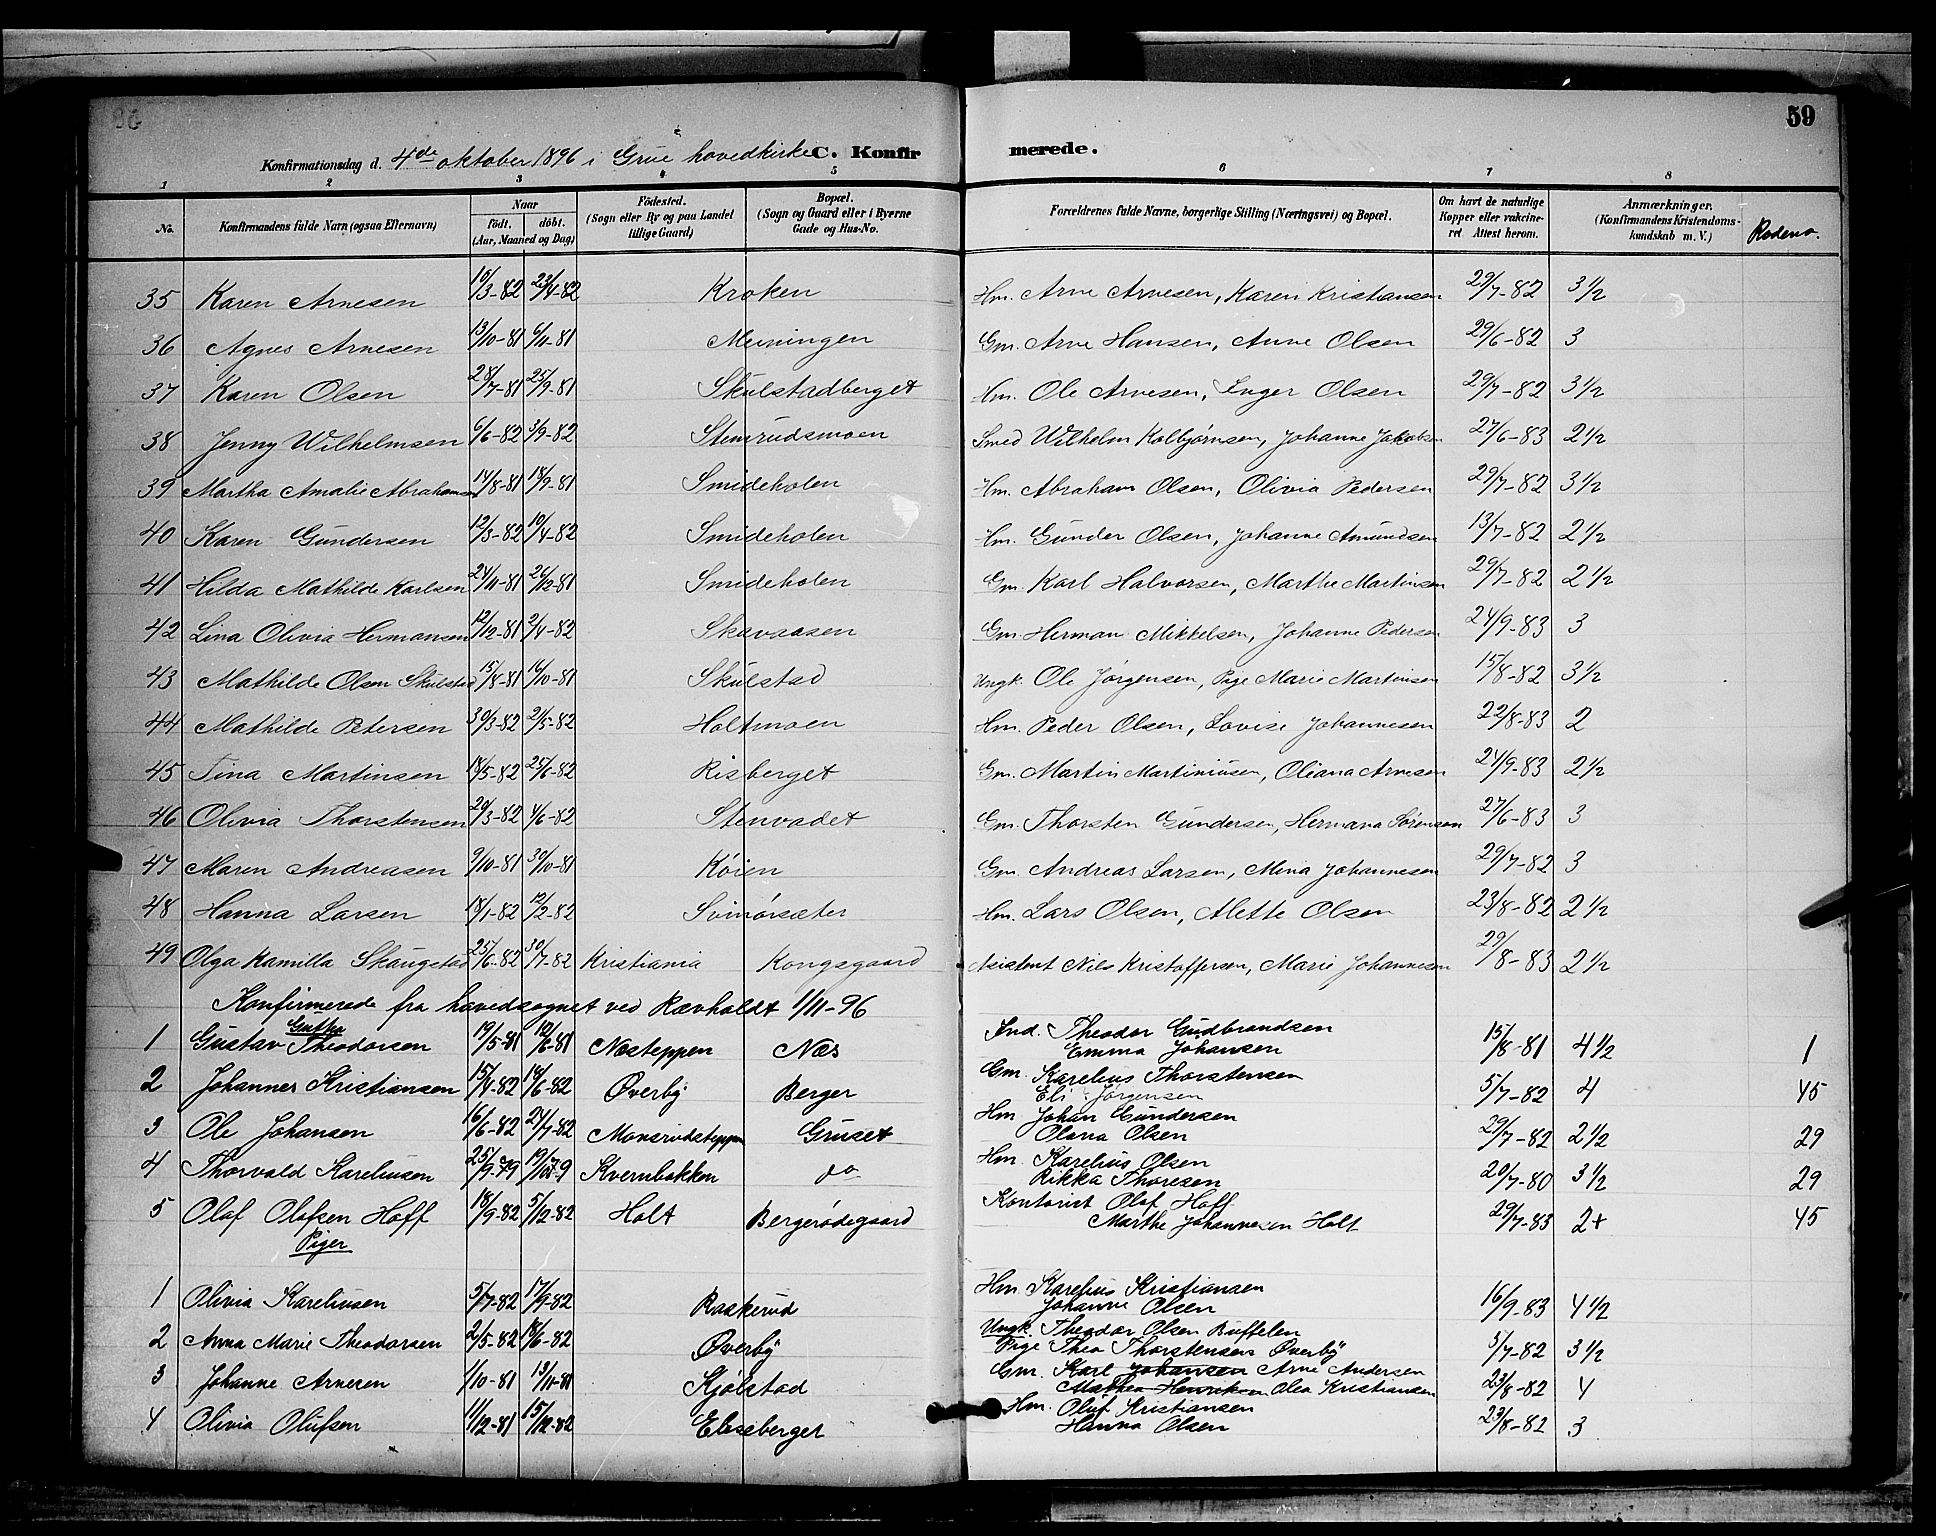 59
Konfirmationsdag d. 4de oktober 1896 i Grue hovedkirke C. Konfirmerede.
1 2 3 4 5 6 7 8
No. Konfirmandens fulde Navn (ogsaa Efternavn) Naar födt. döbt. (Aar, Maaned og Dag) Födested. (Sogn eller By og paa Landet tillige Gaard) Bopæl. (Sogn og Gaard eller i Byerne Gade og Hus-No. Forældrenes fulde Navne, borgerlige Stilling (Næringsvei) og Bopæl. Om havt de naturlige Kopper eller vakcineret. Attest herom. Anmærkninger. (Konfirmandens Kristendomskundskab m. V.) Rodeno.
35 Karen Arnesen 10/3-82 23/4-82 Kroken Hm. Arne Arnesen, Karen Kristiansen 29/7-82 3½
36 Agnes Arnesen 13/10-81 6/11-81 Meiningen Gm. Arne Hansen, Anne Olsen 29/6-82 3
37 Karen Olsen 28/7-81 25/9-81 Skulstadberget Hm. Ole Arnesen, Inger Olsen 29/7-82 3½
38 Jenny Wilhelmsen 6/6-82 3/9-82 Stemrudsmoen Smed Wilhelm Kolbjørnsen, Johanne Jakobsen 27/6-83 2½
39 Martha Amalie Abrahamsen 14/8-81 18/9-81 Smideholen Hm. Abraham Olsen, Olivia Pedersen 29/7-82 3½
40 Karen Gundersen 12/3-82 10/4-82 Smideholen Hm. Gunder Olsen, Johanne Amundsen 13/7-82 2½
41 Hilda Mathilde Karlsen 24/11-81 26/12-81 Smideholen Gm. Karl Halvorsen, Marthe Martinsen 29/7-82 2½
42 Lina Olivia Hermansen 12/12-81 2/4-82 Skavaasen Gm. Herman Mikkelsen, Johanne Pedersen 24/9-83 3
43 Mathilde Olsen Skulstad 15/8-81 16/10-81 Skulstad Ungk. Ole Jørgensen, Pige Marie Martinsen 15/8-82 3½
44 Mathilde Petersen 30/3-82 21/5-82 Holtmoen Hm. Peder Olsen, Lovise Johannesen 22/8-83 2
45 Tina Martinsen 18/5-82 25/6-82 Risberget Gm. Martin Martiniusen, Oliana Arnesen 24/9-83 2½
46 Olivia Thorstensen 29/3-82 4/6-82 Stenvadet Gm. Thorsten Gundersen, Hermana Sørensen 27/6-83 3
47 Maren Andreasen 9/10-81 30/10-81 Køien Gm. Andreas Larsen, Mina Johannesen 29/7-82 3
48 Hanna Larsen 18/1-82 12/2-82 Svinørsæter Hm. Lars Olsen, Mette Olsen 23/8-82 2½
49 Olga Kamilla Skaugstad 25/6-82 30/7-82 Kristiania Kongsgaard Asistent Nils Kristoffersen, Marie Johannesen 29/8-83 2½
Konfirmerede fra hovedsognet ved Rævholdt 1/11-96
1 Gustav Theodorsen 19/5-81 12/6-81 Næsteppen Næs Ind. Theodor Gudbrandsen 15/8-81 4½ 1
Emma Johansen
2 Johannes Kristiansen 15/4-82 18/6-82 Øverby Berger Gm. Karelius Thorstensen 5/7-82 4 45
Eli Jørgensen
3 Ole Johansen 16/6-82 24/7-82 Monsrudsteppen Gruset Hm. Johan Gundersen 29/7-82 2½ 29
Olava Olsen
4 Thorvald Kareliusen 25/9-79 19/10-79 Kvernbakken do Hm. Karelius Olsen 20/7-80 3½ 29
Rikka Thoresen
5 Olaf Olafsen Hoff 18/9-82 5/12-82 Holt Bergerødegaard Kontorist Olaf Hoff 29/7-83 2+ 45
Marthe Johannesen Holt
Piger
1 Olivia Kareliusen 5/7-82 17/9-82 Raskerud Hm Karelius Kristiansen 16/9-83 4½
Johanne Olsen
2 Anna Marie Theodorsen 2/5-82 18/6-82 Øverby Ungk. Theodor Olsen Buffelen 5/7-82 3½
Pige Thea Thorstensen Øverby
3 Johanne Arnesen 1/10-81 13/11-81 Kjølstad Gm. Karl Johansen Arne Andersen 23/8-82 4
Mathea Henriksen Olea Kristiansen
4 Olivia Olufsen 11/12-81 15/12-82 Eliseberget Hm. Oluf Kristiansen 23/8-82 3
Hanna Olsen